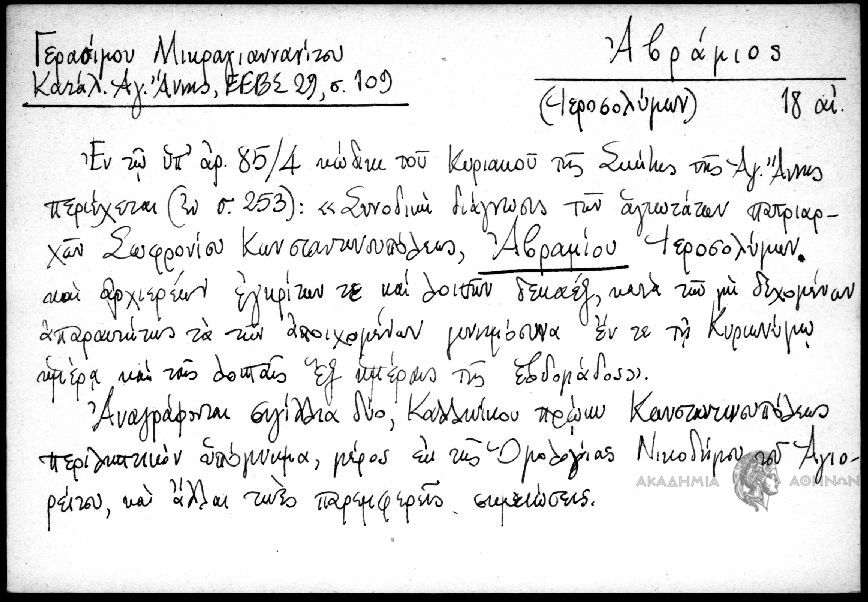 Γερασίμου Μικραγιαννανίτου
Κατάλ. Ἁγ. Ἄννης, ΕΕΒΣ 29, σ. 109
Ἀβράμιος
(Ἱεροσολύμων) 18 αἰ.
Ἐν τῷ ὑπ' ἀρ. 85/4 κώδικι τοῦ Κυριακοῦ τῆς Σκήτης τῆς Ἁγ. Ἄννης
περιέχεται (ἐν σ. 253): «Συνοδικὴ διάγνωσις τῶν ἁγιωτάτων πατριαρ-
χῶν Σωφρονίου Κωνσταντινουπόλεως, Ἀβραμίου Ἱεροσολύμων.
καὶ ἀρχιερέων ἐγκρίτων τε καὶ λοιπῶν δεκαέξ, κατὰ τῶν μὴ δεχομένων
ἀπαραιτήτως τὰ τῶν ἀποιχομένων μνημόσυνα ἔν τε τῇ Κυριωνύμῳ
ἡμέρᾳ καὶ ταῖς λοιπαῖς ἓξ ἡμέραις τῆς ἑβδομάδος».
Ἀναγράφονται σιγίλλια δύο, Καλλινίκου πρώην Κωνσταντινουπόλεως
περιληπτικὸν ὑπόμνημα, μέρος ἐκ τῆς Ὁμολογίας Νικοδήμου τοῦ Ἁγιο-
ρείτου, καὶ ἄλλαι τινὲς παρεμφερεῖς σημειώσεις.
ΑΚΑΔΗΜΙΑ ΑΘΗΝΩΝ